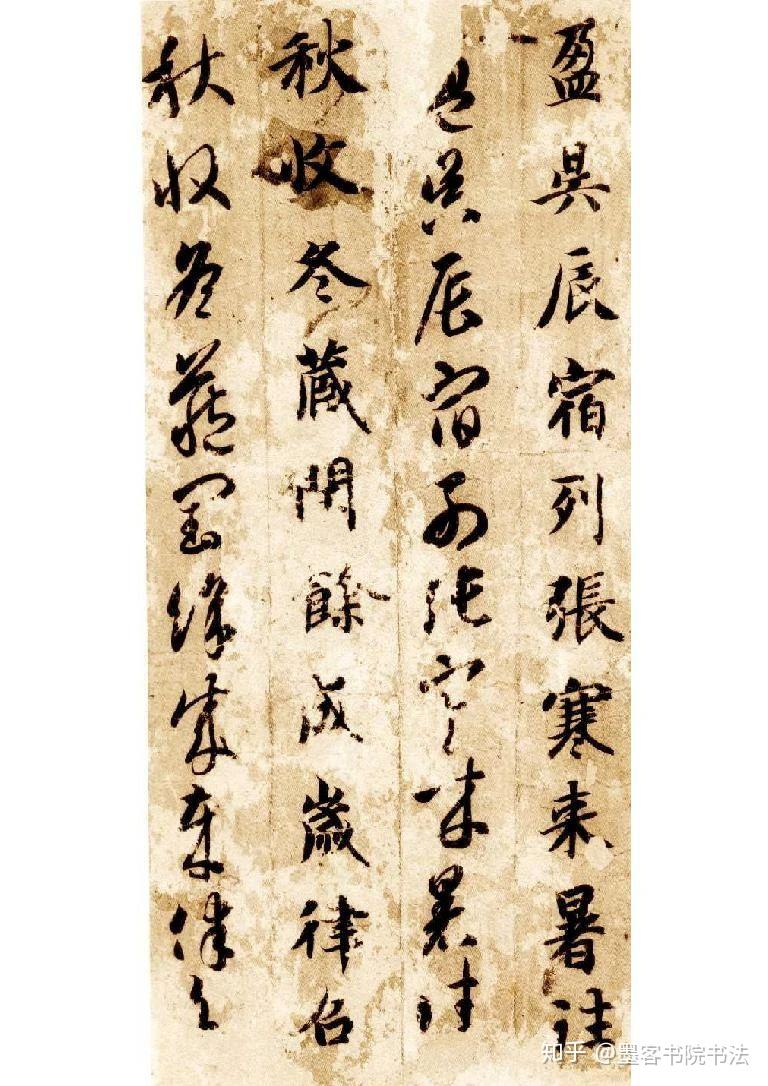 盈昃辰宿列張寒来暑往
盈昃辰宿列張寒来暑往
秋收冬藏閏餘成歲律召
秋收冬藏閏餘成歲律召
知乎 @墨客书院书法